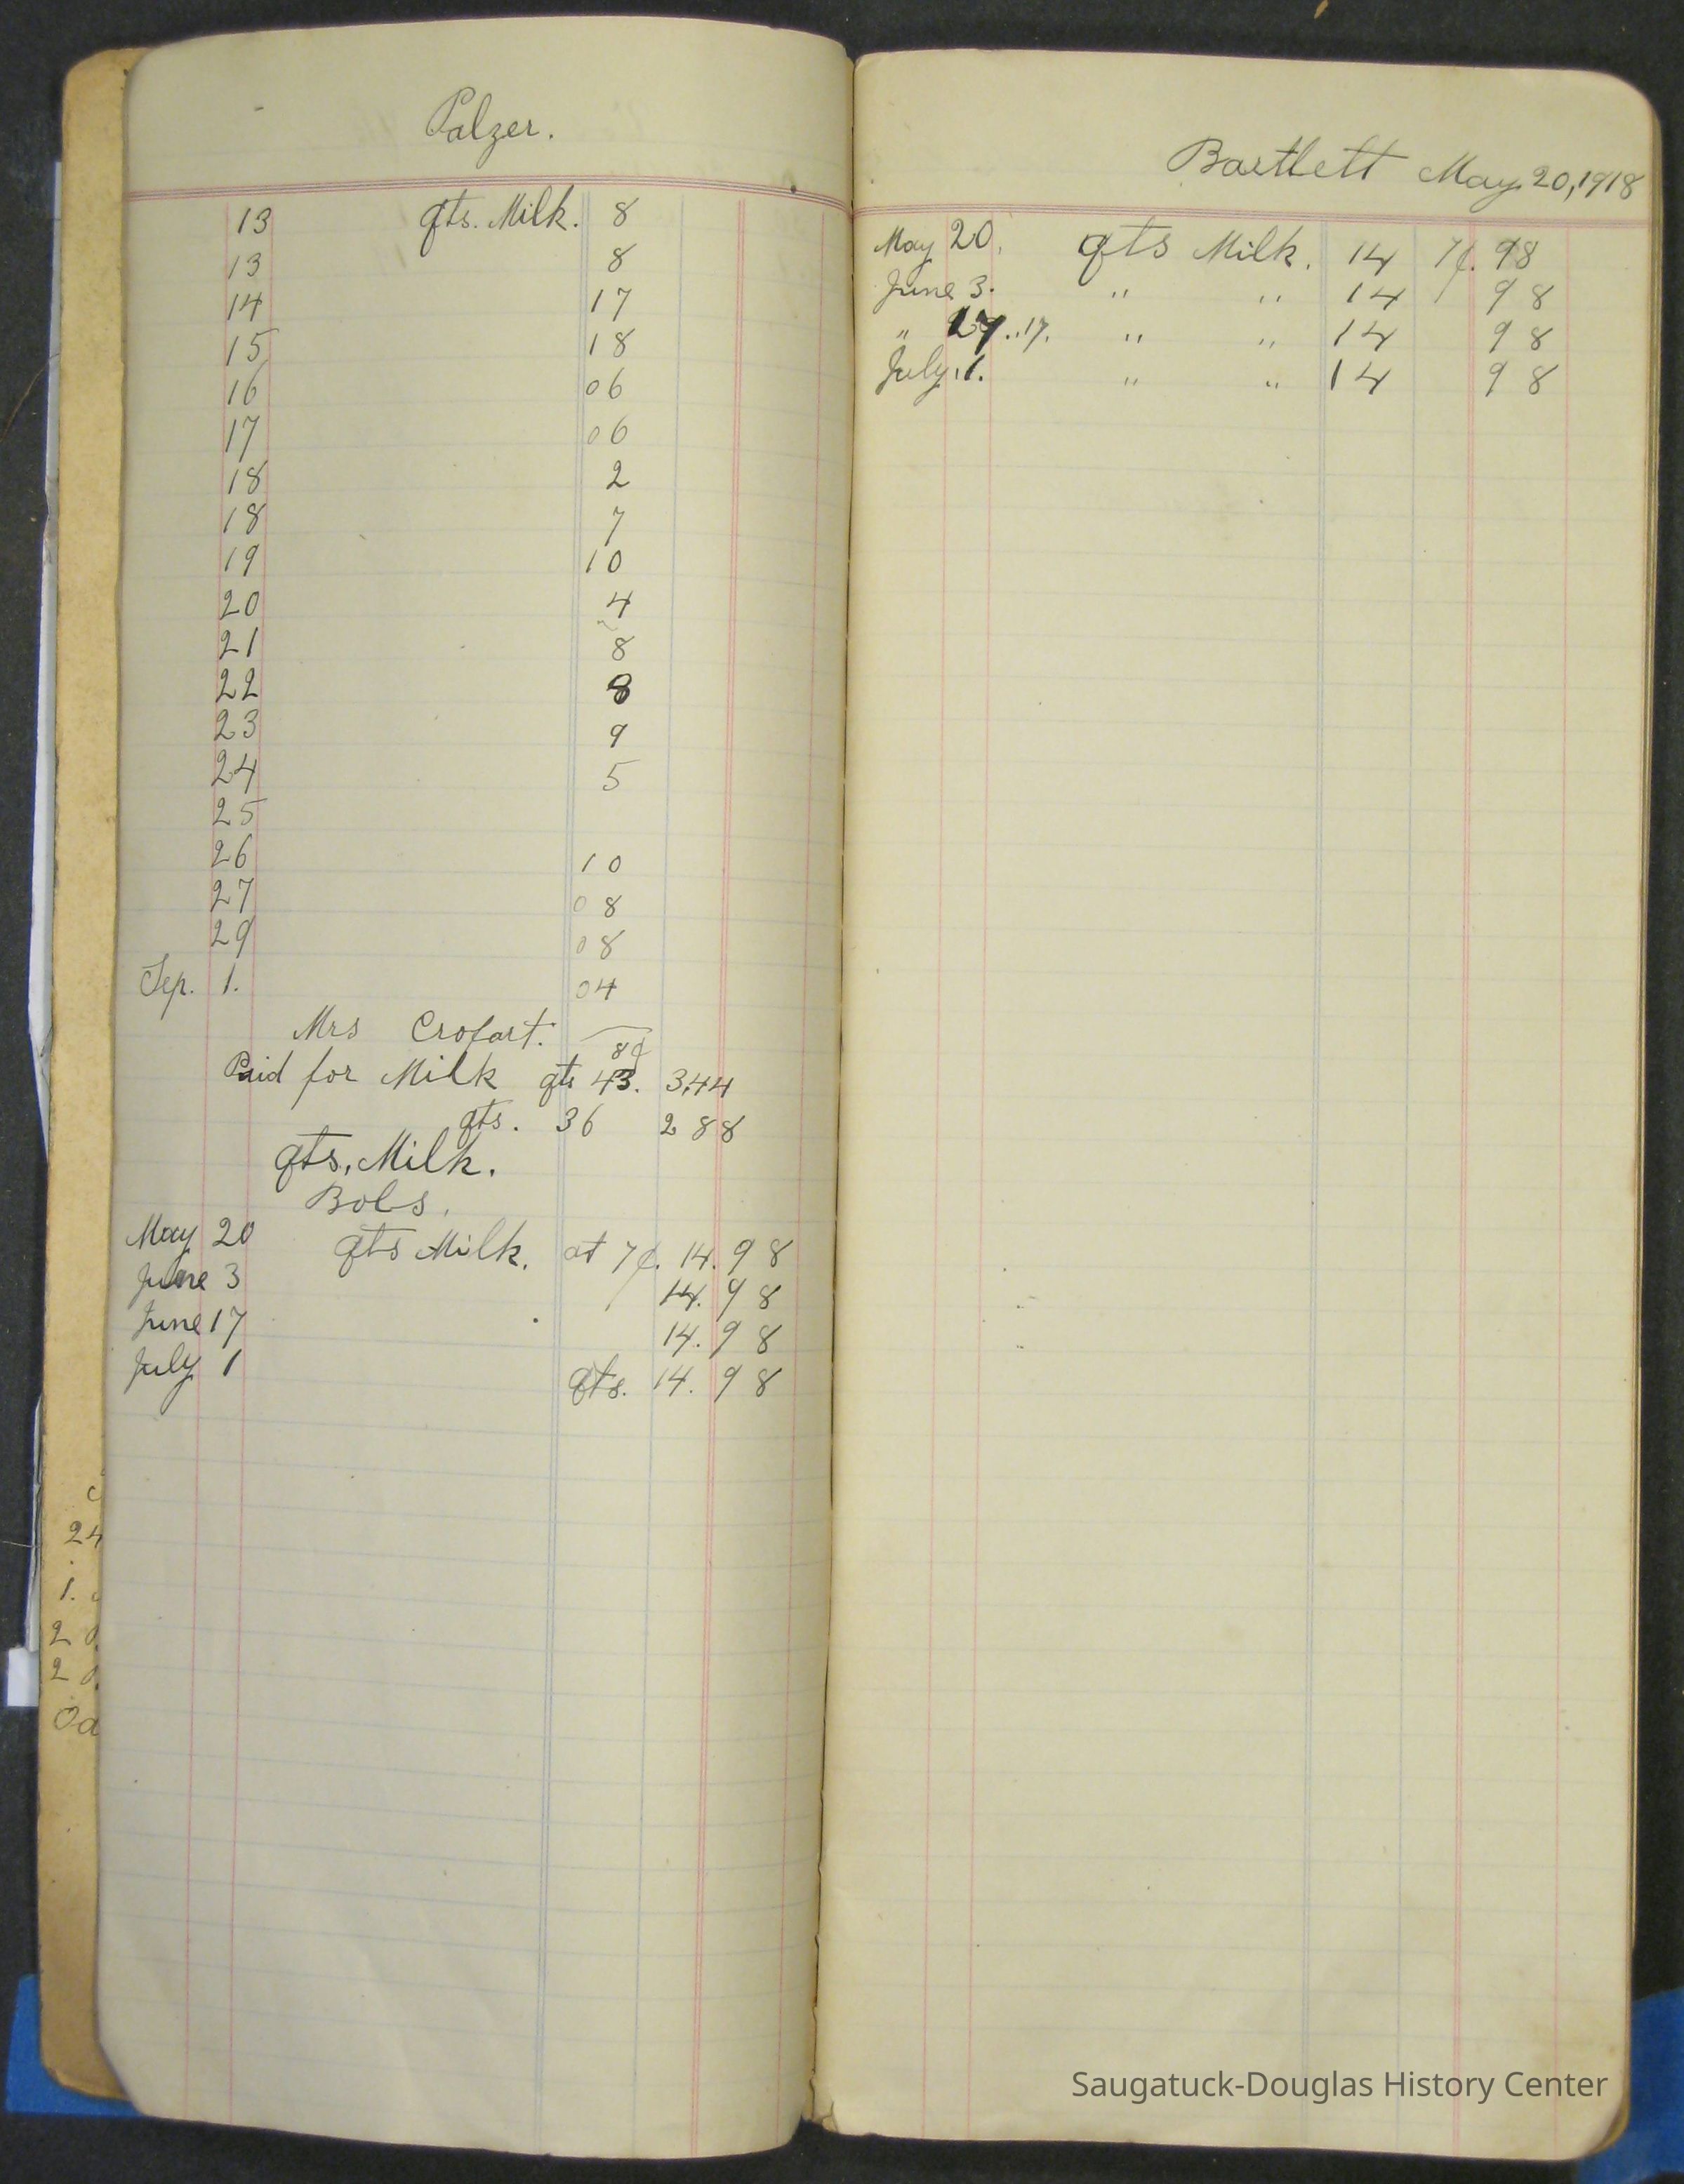 Palzer.
13 qts. Milk. 8
13 8
14 17
15 18
16 06
17 06
18 2
18 7
19 10
20 4
21 8
22 8
23 9
24 5
25
26 10
27 08
29 08
Sep. 1. 04
Mrs Crofart.
8¢
Paid for Milk qts 43. 3,44
qts. 36 2 88
qts, Milk.
Bobs.
May 20 qts Milk. at 7¢. 14. 98
June 3 14. 98
June 17 14. 98
July 1 qts. 14. 98
24
1.
2
2
Bartlett May 20, 1918
May 20. qts Milk. 14 7¢. 98
June 3. " " 14 98
" 17. " 17. " " 14 98
July 1. " " 14 98
Saugatuck-Douglas History Center